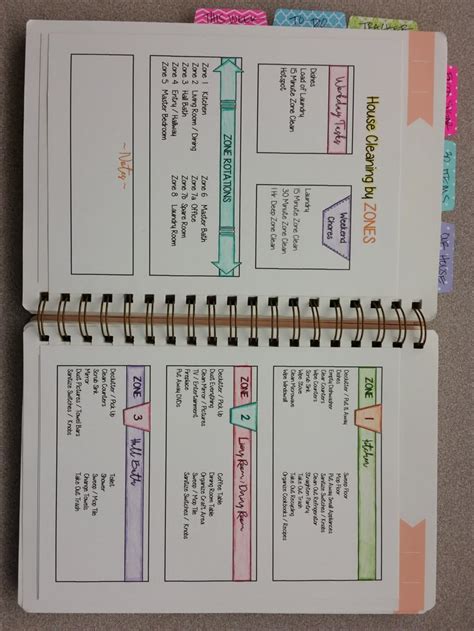 THIS WEEK
TO-DO
TRACKER
30 ITEMS
OF HOUSE
House Cleaning by ZONES
Workday Tasks
Dishes
Load of Laundry
15 Minute Zone Clean
Hotspot
Weekend
Chores
Laundry
15 Minute Zone Clean
30 Minute Zone Clean
1 Hr Deep Zone Clean
ZONE ROTATIONS
Zone 1 Kitchen
Zone 2 Living Room / Dining
Zone 3 Hall Bath
Zone 4 Entry / Hallway
Zone 5 Master Bedroom
Zone 6 Master Bath
Zone 7a Office
Zone 7b Spare Room
Zone 8 Laundry Room
~Notes~
ZONE 1 Kitchen
Declutter / Put Away
Dishes
Empty Dishwasher
Clear Counters
Scrub Sink
Wipe Counters
Wipe Stove
Clean Microwave
Wipe Windowsill
Sweep Floor
Mop Floor
Put Away Small Appliances
Clean Out Refrigerator
Straighten Pantry
Take Out Recycling
Take Out Trash
Organize Cookbooks / Recipes
ZONE 2 Living Room / Dining Room
Declutter / Pick Up
Dust Everything
Clean Mirror / Pictures
TV / Entertainment
Fireplace
Put Away DVDs
Coffee Table
Dining Room Table
Organize Craft Area
Sweep / Mop Tile
Sanitize Switches / Knobs
ZONE 3 Hall Bath
Declutter / Pick Up
Clean Counters
Scrub Sink
Mirror
Dust Pictures / Towel Bars
Sanitize Switches / Knobs
Toilet
Shower
Sweep / Mop Tile
Change Towels
Take Out Trash